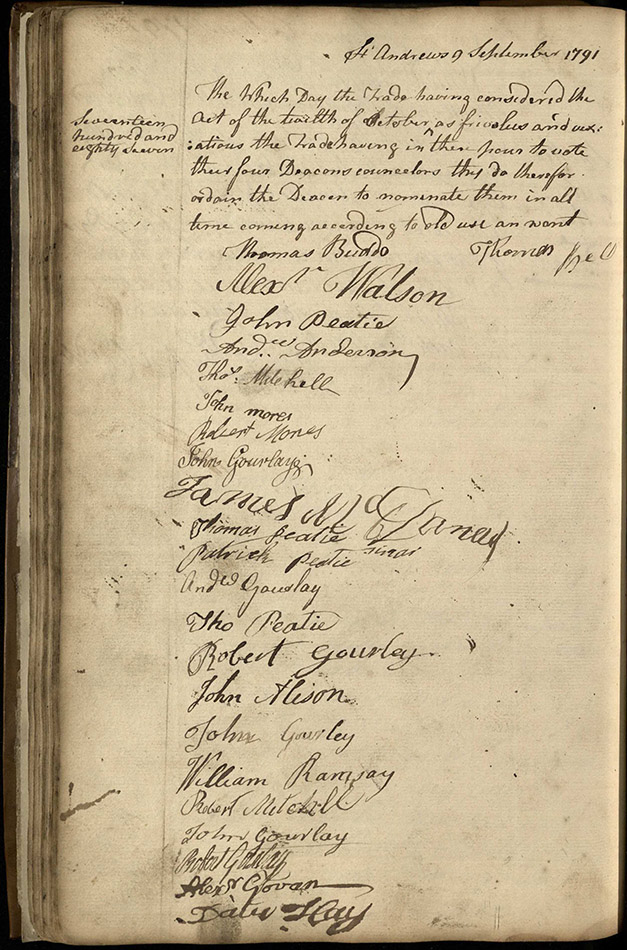 St Andrews 9 September 1791
The Which Day the Trade having considered the
Seventeen
hundred and
eighty seven
act of the twelth of October as frivolus and vex:
:atious the Trade having in their pour to vote
their four Deacons councelors this do therefor
ordain the Deacen to nominate them in all
time coming according to old use an wont
Thomas Buddo
Thomas
Alexr Walson
John Peatie
Andw Anderson
Thos Mitchell
John mores
Robert Mores
John Gourlay
James McDonad
Thomas Peatie
Patrick Peatie
Andw Gourlay
Tho Peatie
Robert Gourley
John Alison
John Gourley
William Ramsay
Robert Mitchell
John Gourlay
Robert
Alexr Govan
Hay